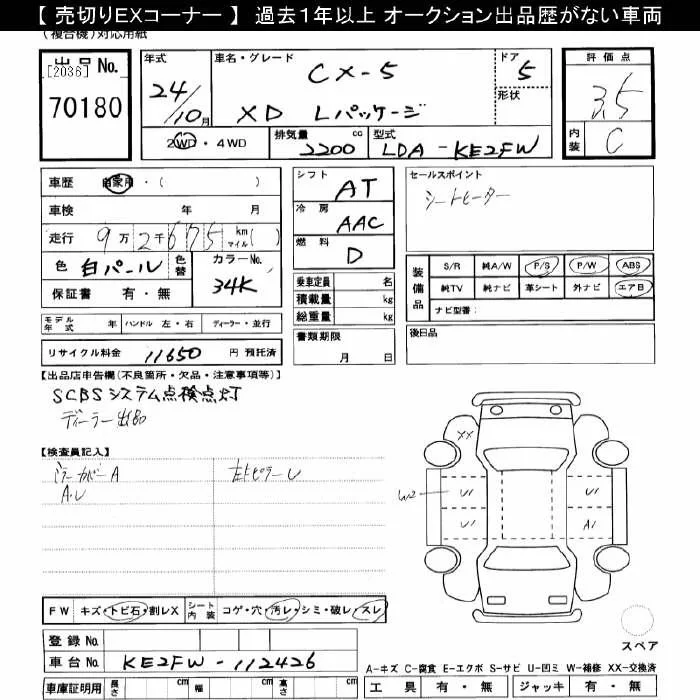 【 売切りEXコーナー 】 過去1年以上 オークション出品歴がない車両
(複合機)対応用紙
出品No.
[2036]
70180
年式
24/10月
車名・グレード
CX-5
XD Lパッケージ
ドア
5
形状
評価点
3.5
内装
C
2WD・4WD
排気量
2200 cc
型式
LDA-KE2FW
車歴 自家用・( )
車検 年 月
走行 9万2千675 km マイル( )
色 白パール 色替 カラーNo. 34K
保証書 有・無
シフト AT
冷房 AAC
燃料 D
乗車定員 名
積載量 kg
総重量 kg
セールスポイント
シートヒーター
装備品
S/R 純A/W P/S P/W ABS
純TV 純ナビ 革シート 外ナビ エアB
ナビ型番:
モデル年式 年 ハンドル 左・右 ディーラー・並行
リサイクル料金 11650 円 預託済
書類期限
月 日
後日品
【出品店申告欄(不良箇所・欠品・注意事項等)】
SCBSシステム点検点灯
ディーラー出品
【検査員記入】
ミラーカバーA 左BピラーU
A・U
XX
W2
U1
U1
U1
A1
FW キズ・トビ石・割レX シート内装 コゲ・穴・汚レ・シミ・破レ・スレ
登録No.
車台No. KE2FW-112426
車庫証明用 長さ cm 幅 cm 高さ cm
スペア
A-キズ C-腐食 E-エクボ S-サビ U-凹ミ W-補修 XX-交換済
工具 有・無 ジャッキ 有・無